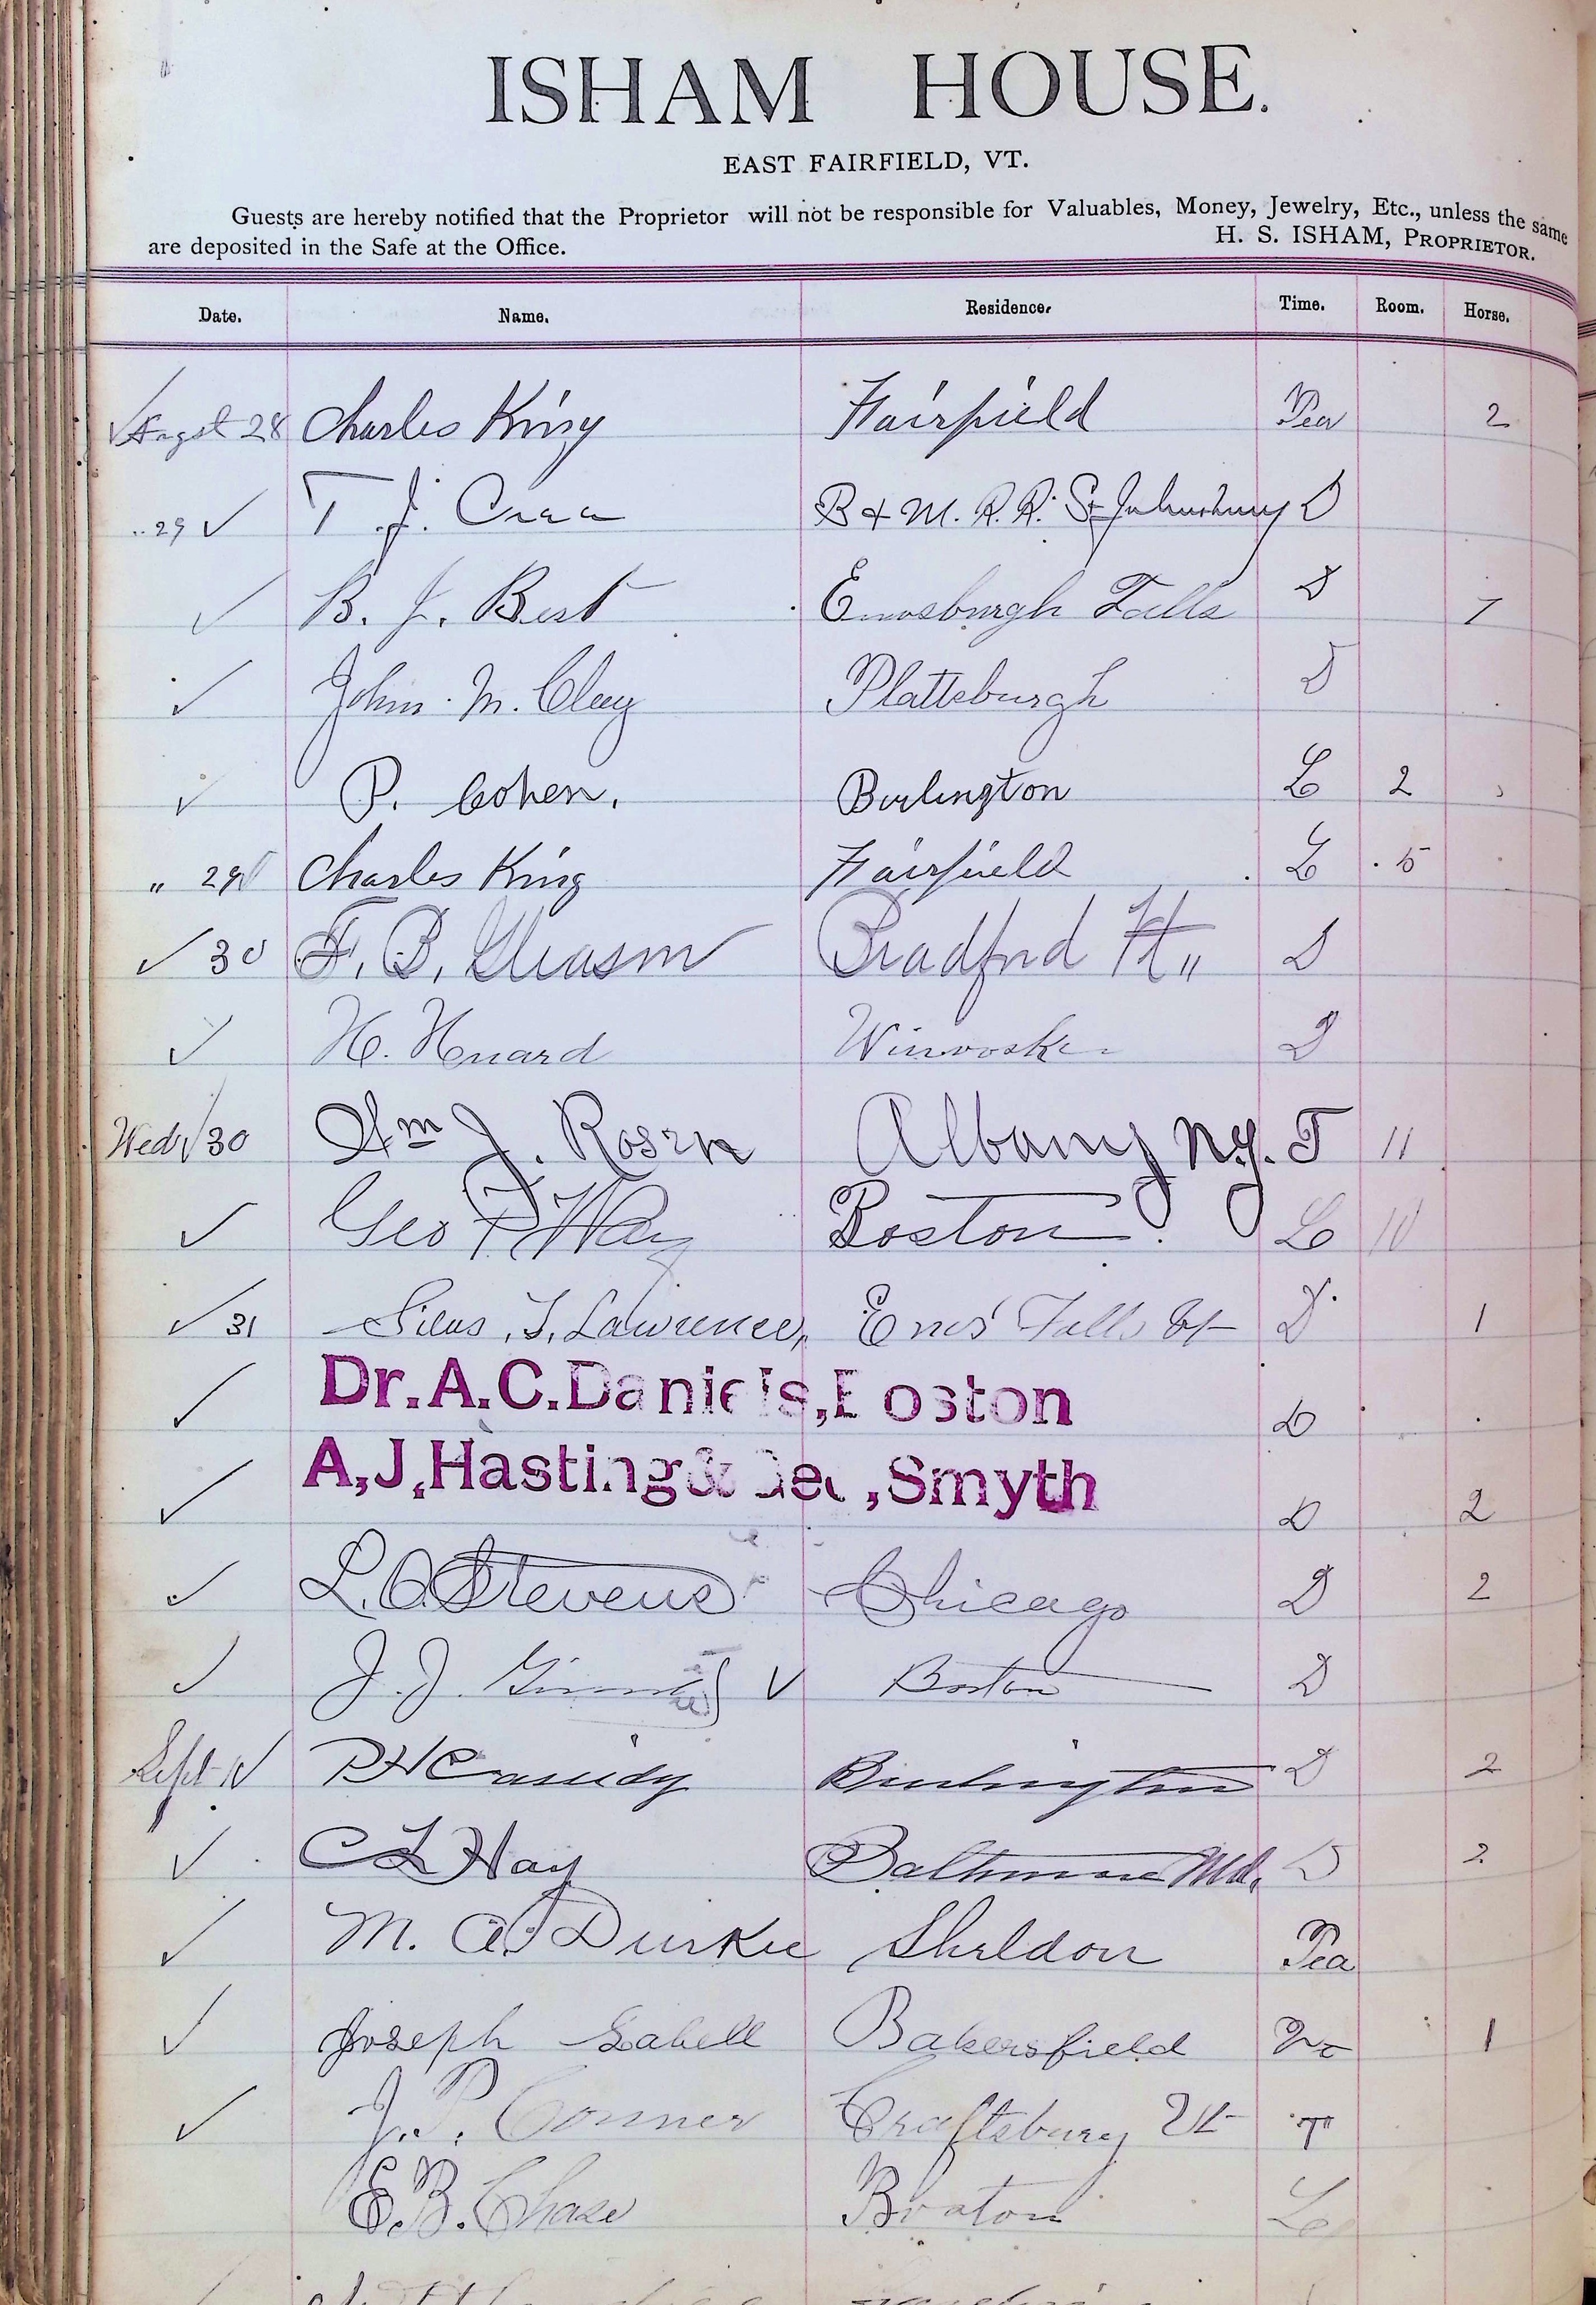 ISHAM HOUSE.
EAST FAIRFIELD, VT.
Guests are hereby notified that the Proprietor will not be responsible for Valuables, Money, Jewelry, Etc., unless the same
are deposited in the Safe at the Office. H. S. ISHAM, PROPRIETOR.
Date. Name. Residence. Time. Room. Horse.
Augst 28 Charles King Fairfield Tea 2
" 29 T. J. B & M. R. R. St Johnsbury D
B. J. Best Enosburgh Falls D 1
John M. Clay Plattsburgh D
P. Cohen. Burlington L 2
" 29 Charles King Fairfield L 5
30 F. B. Gleason Bradford Vt " D
H. Huard Winooski D
Wed 30 Wm J. Rosen Albany N.Y. T 11
Geo F. Way Boston L 10
31 Silas . Lawrence, Enos' Falls Vt D 1
Dr.A.C.Daniels,Boston D
A,J,Hasting& ,Smyth D 2
L. O. Stevens Chicago D 2
J. J. Boston D
Sept 1 P H Cassidy Burlington D 2
C L Hay Baltimore Md. D 2
M. A. Durkee Sheldon Tea
Joseph Bakersfield 1
J. P. Conner Craftsbury Vt T
E. B. Chase Boston L